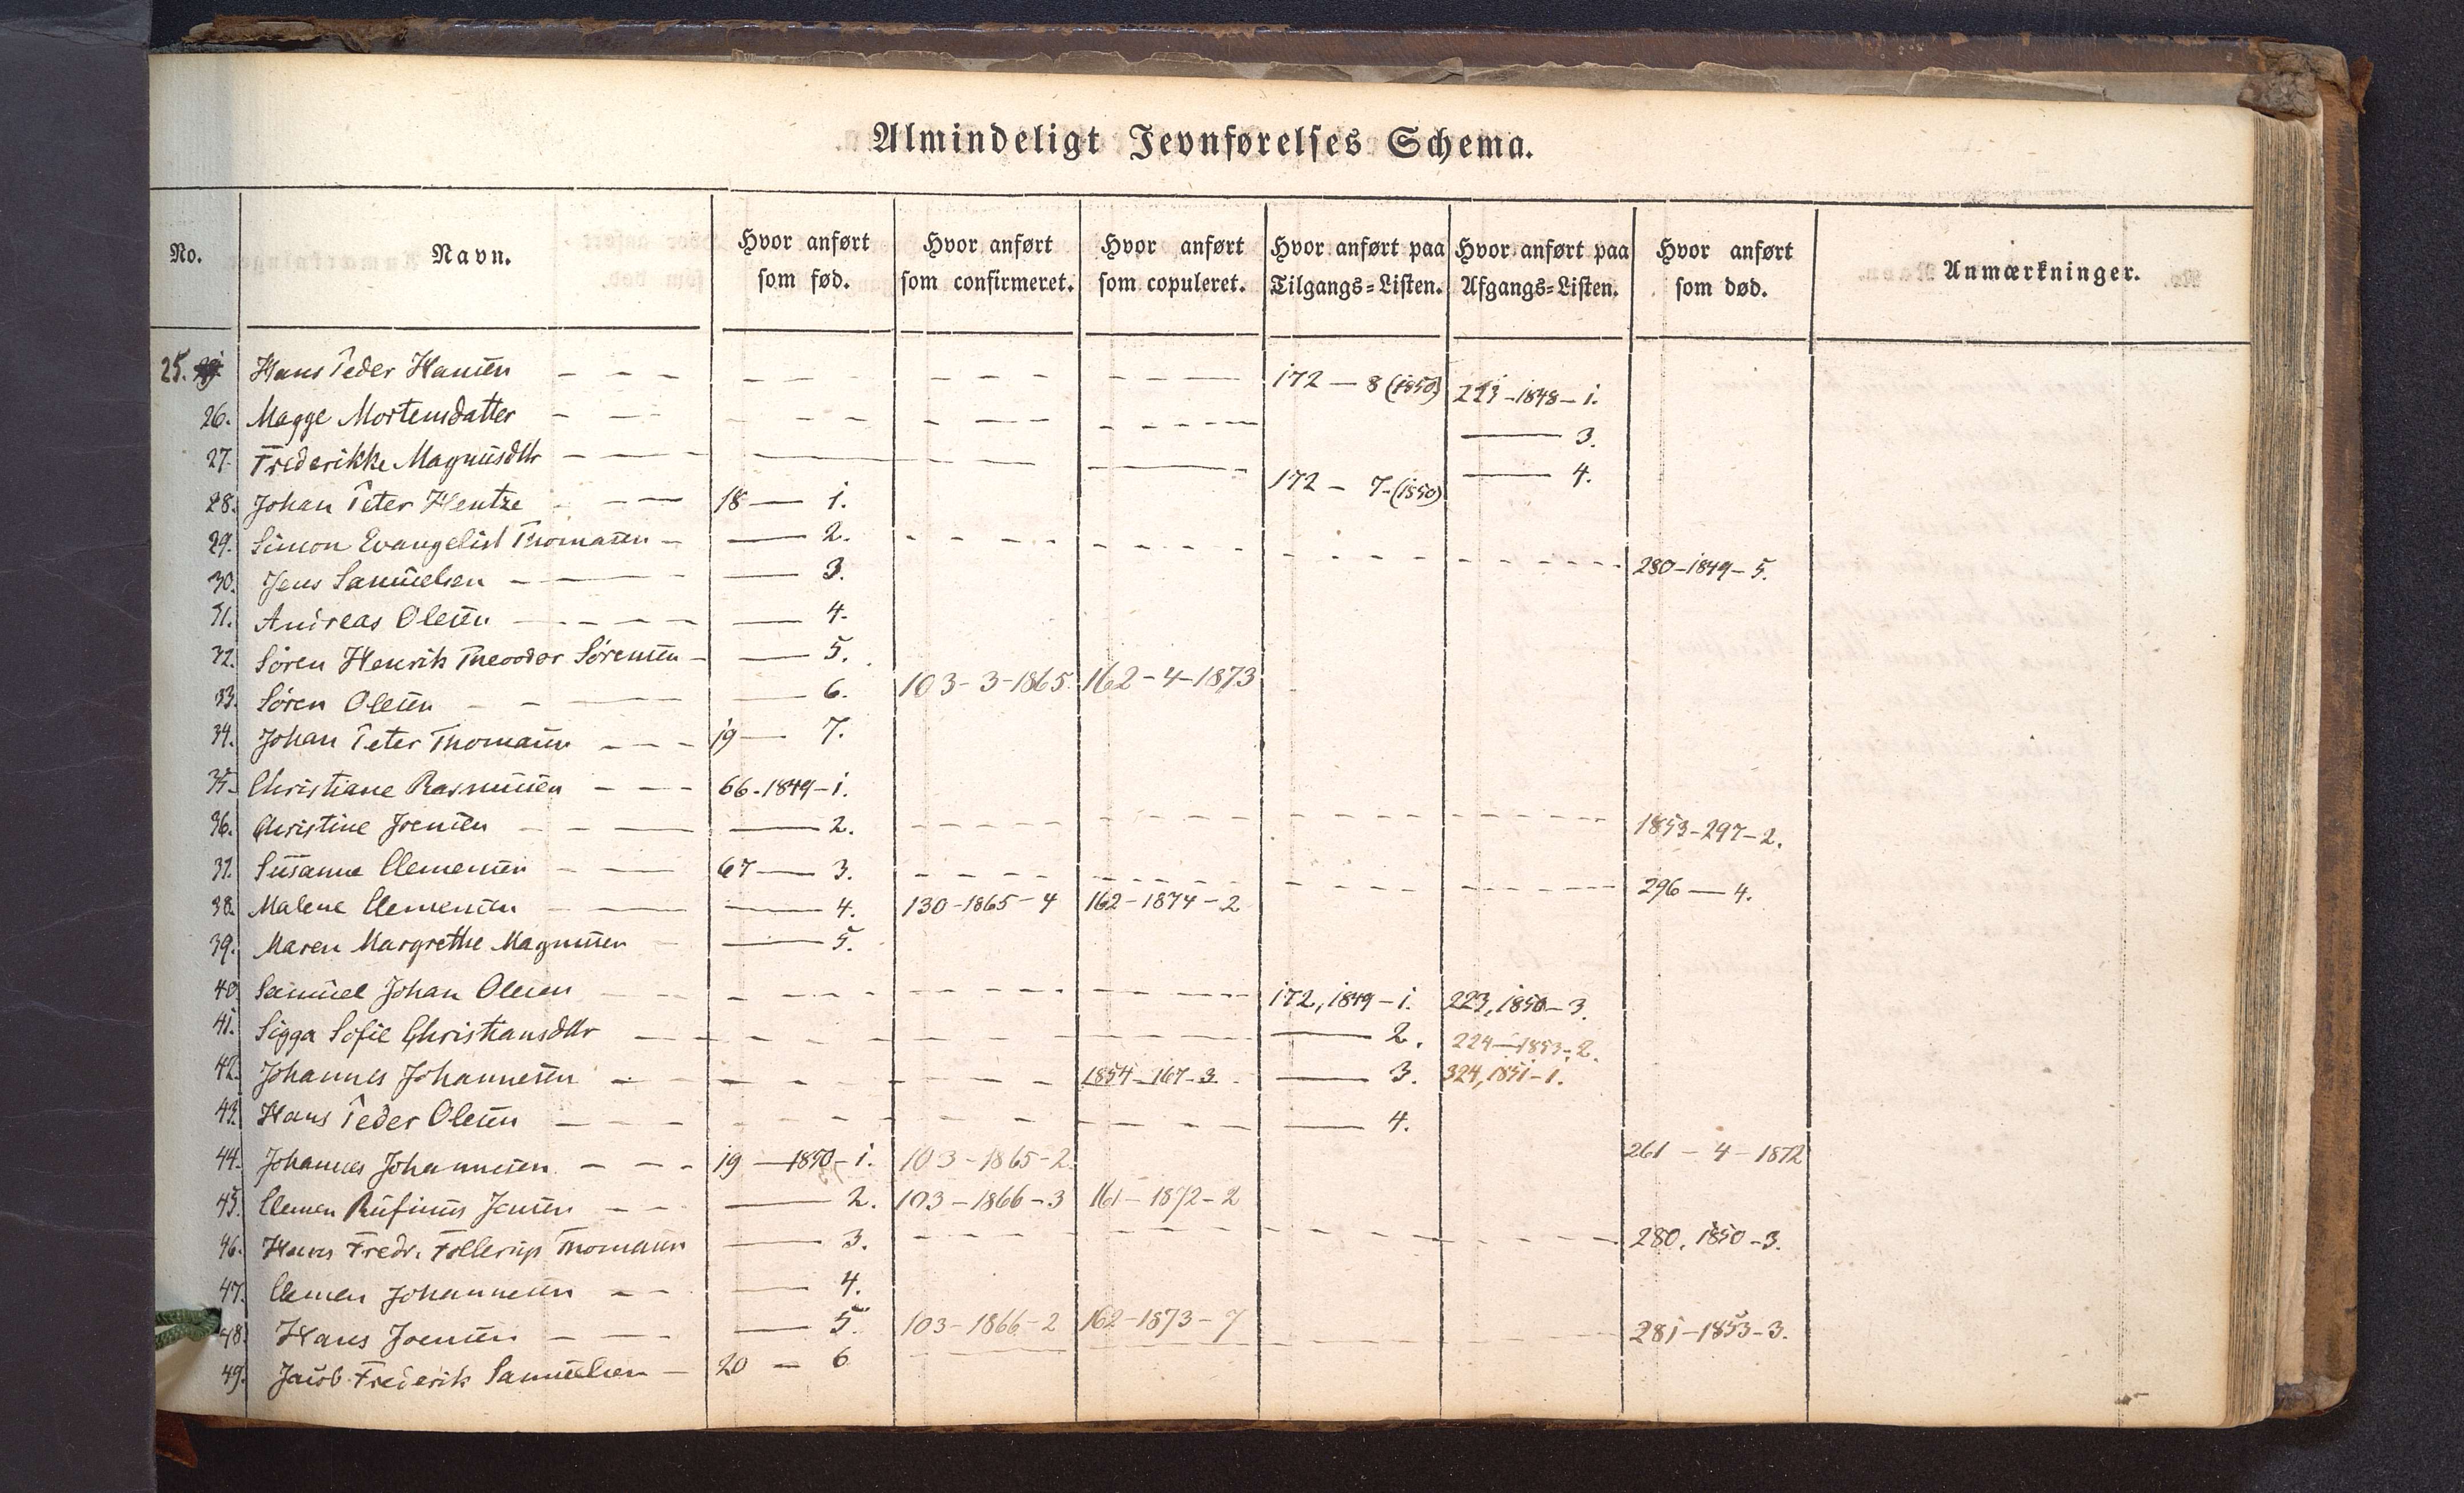 Almindeligt Jevnførelses Schema.
No. Navn. Hvor anført som fød. Hvor anført som confirmeret. Hvor anført som copuleret. Hvor anført paa Tilgangs-Listen. Hvor anført paa Afgangs-Listen. Hvor anført som død. Anmærkninger.
25. Hans Peder Hansen — — — — — — — — — — — 172 — 8 (1850) 223-1848-1.
26. Magge Mortensdatter — — — — — — — — — — — — — 3.
27. Frederikke Magnusdttr — — — — — — — — — 4.
28. Johan Peter Hentze — — 18 — 1. 172 — 7-(1850)
29. Simon Evangelist Thomasen — — 2. - - - - - - - - - - - - - - - - 280-1849-5.
30. Jens Samuelsen — — — — 3.
31. Andreas Olesen — — — — — 4.
32. Sören Henrik Theodor Sörensen — — 5.
33. Sören Olesen — — — — 6. 103-3-1865. 162-4-1873
34. Johan Peter Thomasen — — — 19 — 7.
35. Christiane Rasmussen — — — 66-1849-1.
36. Christine Joensen — — — — 2. - - - - - - - - - - - - - - - - 1853-297-2.
37. Susanne Clemensen — — 67 — 3. - - - - - - - - - - - - - - - - 296 — 4.
38. Malene Clemensen — — — 4. 130-1865-4 162-1874-2
39. Maren Margrethe Magnussen — — 5.
40. Samuel Johan Olesen — — — — — — — — — — — — 172, 1849-1. 223, 1850-3.
41. Sigga Sofie Christiansdttr — — — — — — — — — — 2. 224-1853-2.
42. Johannes Johannesen — — — — — — — 1854-167-3. — 3. 324, 1851-1.
43. Hans Peder Olesen — — — — — — — — — — — — 4.
44. Johannes Johannesen — — — 19 — 1850-1. 103-1865-2. 261-4-1872
45. Clemen Rufinus Jensen — — — 2. 103-1866-3 161-1872-2
46. Hans Fredr. Follerup Thomasen — 3. - - - - - - - - - - - - - - - - 280, 1850-3.
47. Clemen Johannesen — — — 4.
48. Hans Joensen — — — 5. 103-1866-2 162-1873-7
49. Jacob Frederik Samuelsen — 20 — 6 — — — — — 281-1853-3.